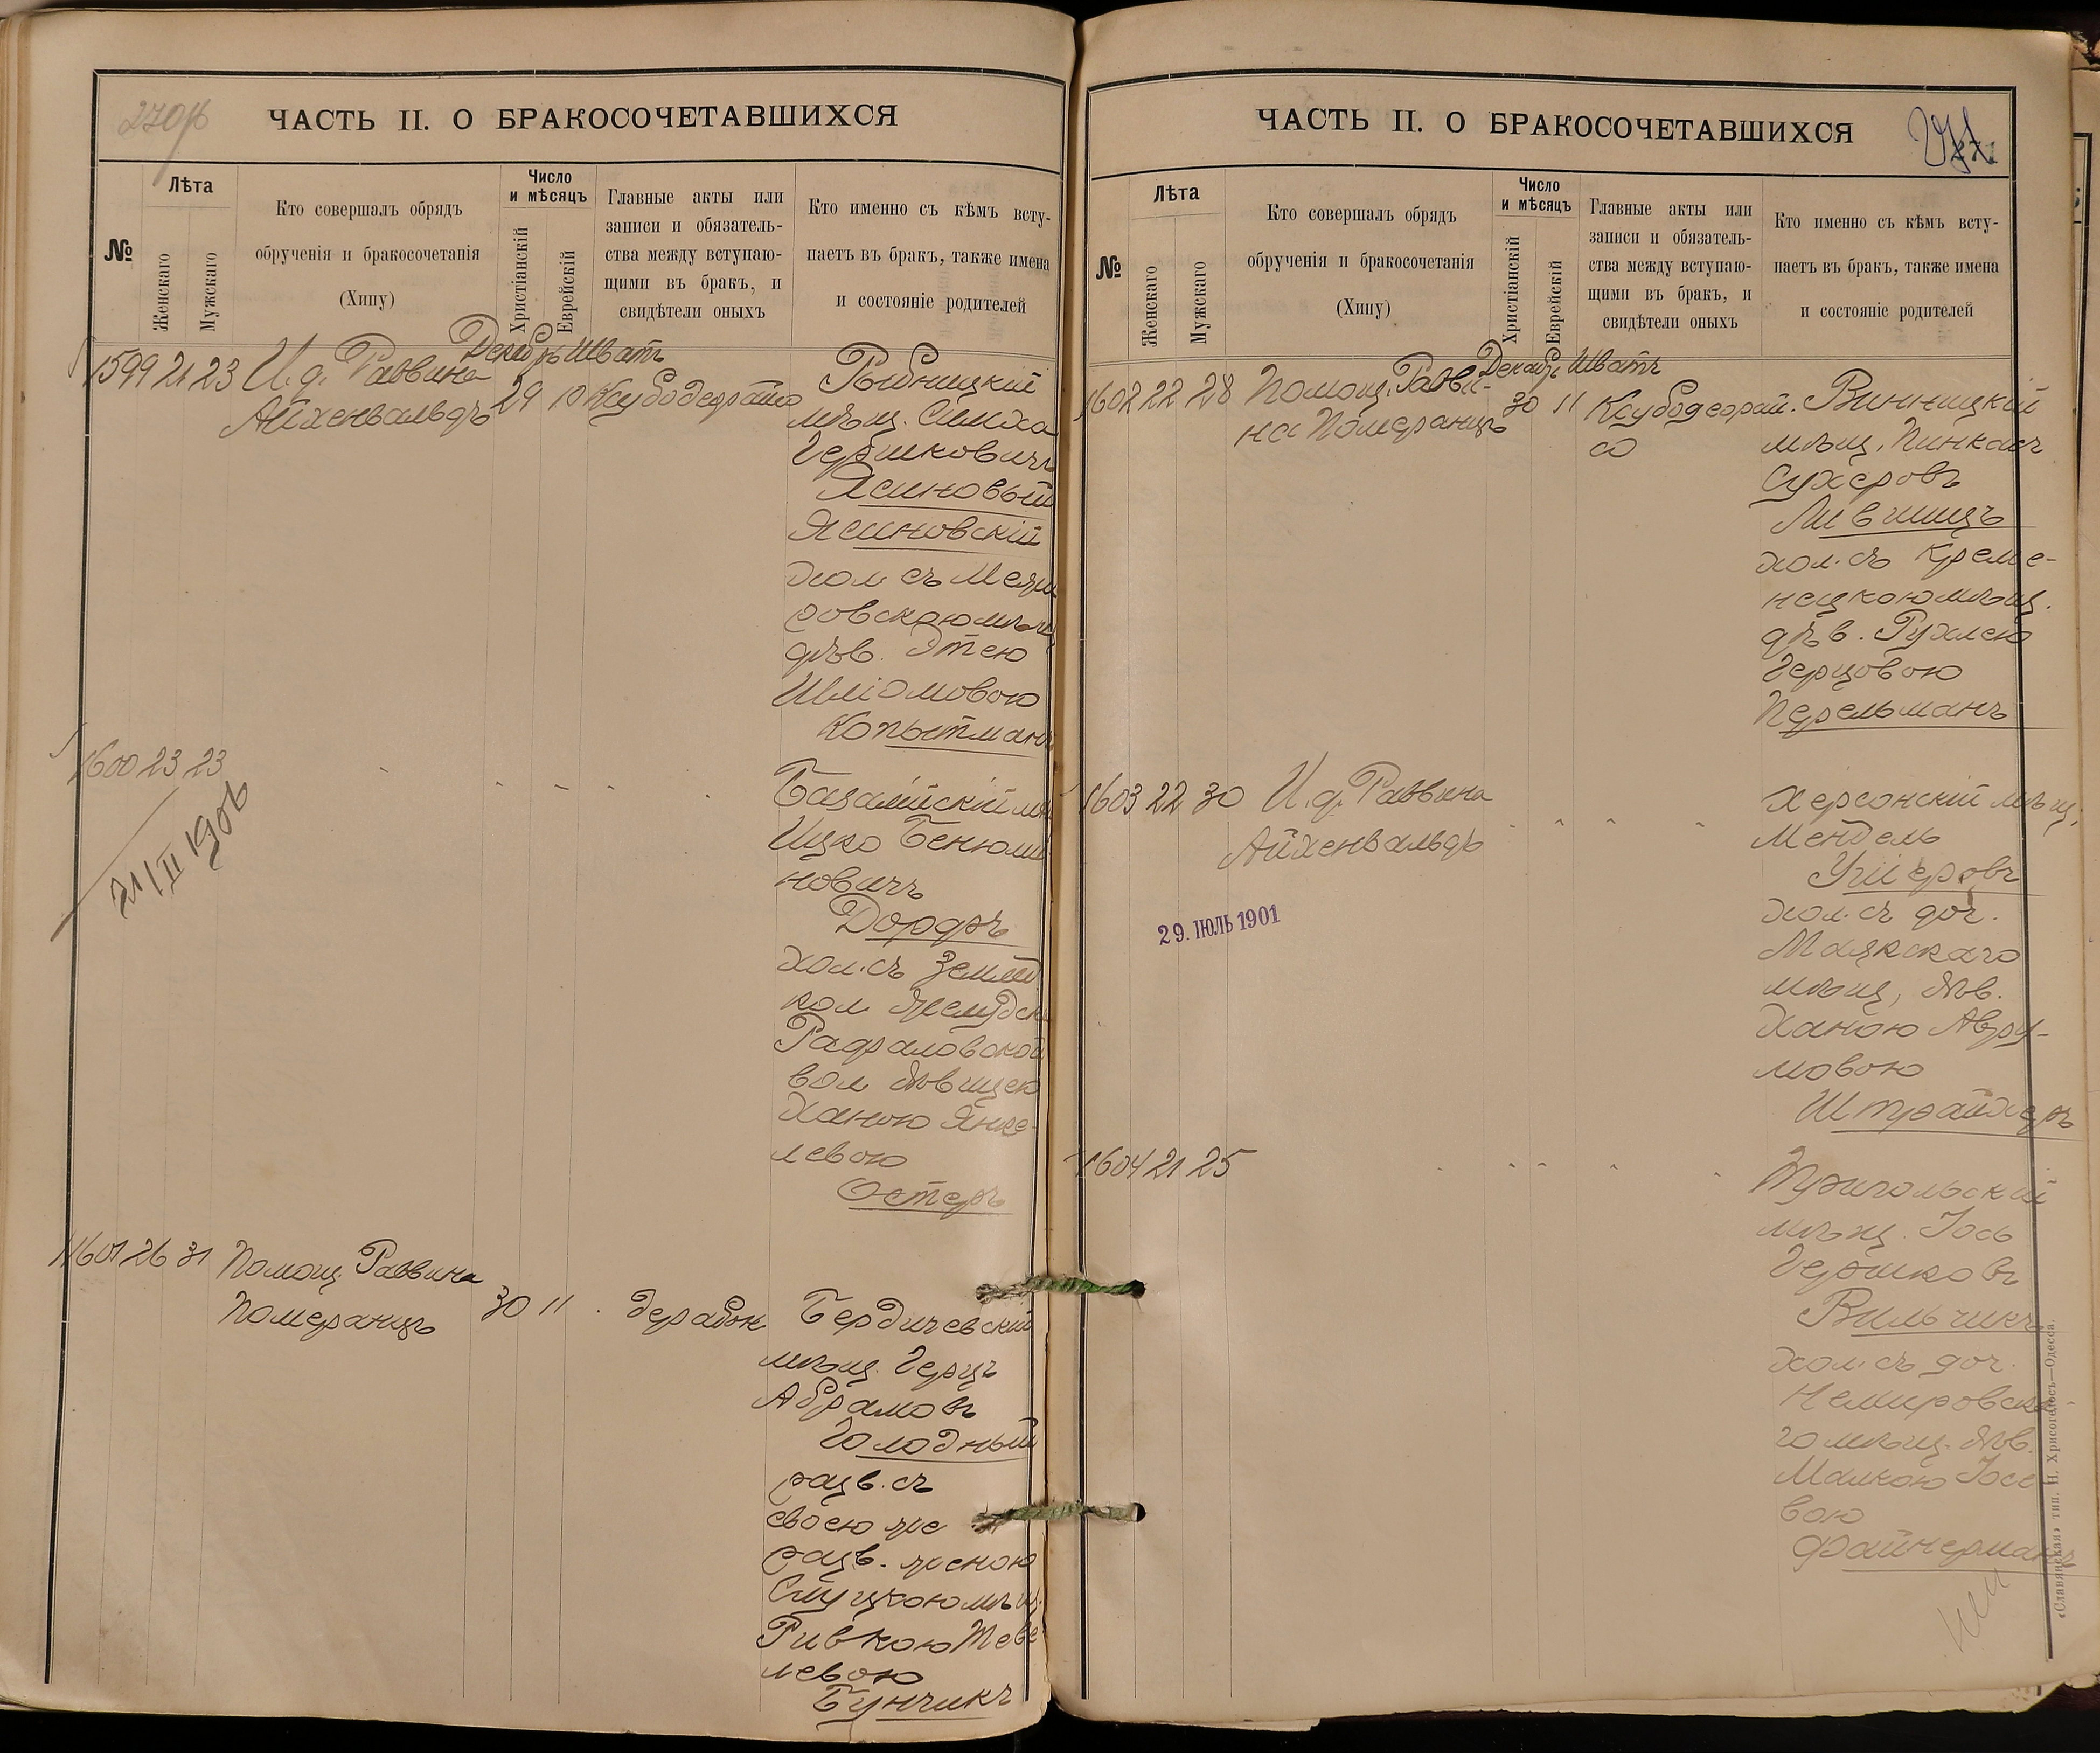 270об
ЧАСТЬ II. О БРАКОСОЧЕТАВШИХСЯ
№
Лѣта
Женскаго
Мужскаго
Кто совершалъ обрядъ
обрученія и бракосочетанія
(Хипу)
Число
и мѣсяцъ
Христіанскій
Еврейскій
Главные акты или
записи и обязатель-
ства между вступаю-
щими въ бракъ, и
свидѣтели оныхъ
Кто именно съ кѣмъ всту-
паетъ въ бракъ, также имена
и состояніе родителей
Декабрь Шватъ
1599 21 23 И. д. Раввина 29 10
Айхенвальдъ
Рыбницкій
мѣщ. Симха
Гершковичъ
Ясиновый
Ясиновскій
хол. съ
дѣв. Этею
Шліомовою
Копытманъ
1600 23 23
21/II 1906
Базалійскій
Ицко Бенюми
новичъ
Дорфъ
хол. съ
кол.
Рафаловской
вол. дѣвицею
Ханою Янке-
левою
Остеръ
1601 26 31 Помощ. Раввина
Померанцъ 30 11
Бердичевскій
мѣщ. Герцъ
Абрамовъ
Голодный
разв. съ
своею же
разв. женою
Слуцкою мѣщ.
Ривкою Теве
левою
Бунчикъ
ЧАСТЬ II. О БРАКОСОЧЕТАВШИХСЯ
271
№
Лѣта
Женскаго
Мужскаго
Кто совершалъ обрядъ
обрученія и бракосочетанія
(Хипу)
Число
и мѣсяцъ
Христіанскій
Еврейскій
Главные акты или
записи и обязатель-
ства между вступаю-
щими въ бракъ, и
свидѣтели оныхъ
Кто именно съ кѣмъ всту-
паетъ въ бракъ, также имена
и состояніе родителей
Декабрь Шватъ
1602 22 28 Помощ. Равви-
на Померанцъ 30 11
Винницкій
мѣщ. Пинкасъ
Сухеровъ
Лившицъ
хол. съ Креме-
нецкою мѣщ.
дѣв. Рухлею
Герцовою
Перельманъ
1603 22 30 И. д. Раввина
Айхенвальдъ
29. ІЮЛЬ 1901
Херсонскій мѣщ.
Мендель
Ушеровъ
хол. съ доч.
Маякскаго
мѣщ. дѣв.
Ханою Авру-
мовою
Штрайхеръ
1604 21 25
мѣщ. Іось
Гершковъ
Вильчикъ
хол. съ доч.
Немировска
го мѣщ. дѣв.
Малкою Іосе
вою
Файнерманъ
«Славянская» тип. Н. Хрисогелосъ—Одесса.